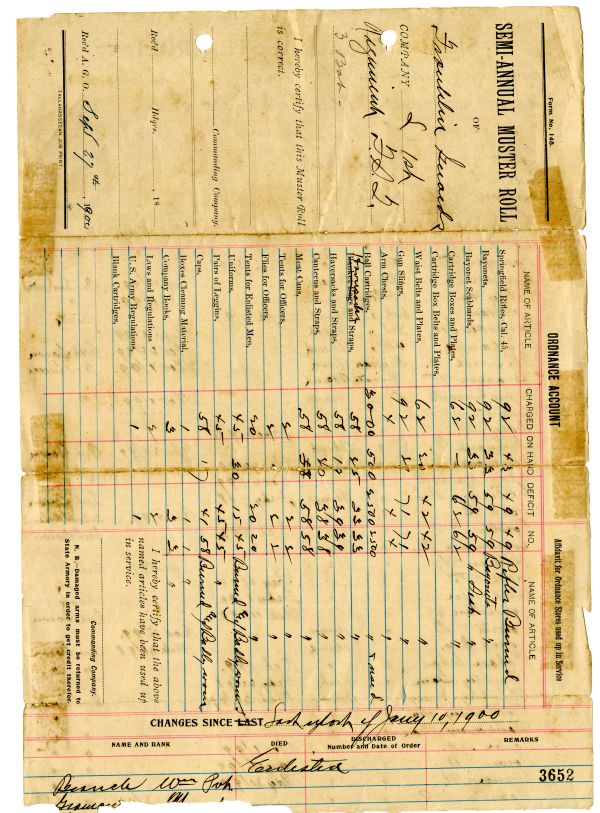 Form No. 148.
SEMI-ANNUAL MUSTER ROLL
OF
Franklin Guards
COMPANY
Regiment
3 Bat.
I hereby certify that this Muster Roll
is correct.
Commanding Company.
Hdqrs. , 18
Rec'd
Rec'd A. G. O. Sept 27th 1900
TALLAHASSEEAN JOB PRINT.
ORDNANCE ACCOUNT
Affidavit for Ordnance Stores used up in Service
NAME OF ARTICLE CHARGED ON HAND DEFICIT NO. NAME OF ARTICLE
Springfield Rifles, Cal. 45, 92 43 49 49 Rifles Burned
Bayonets, 92 33 59 59 Bayonets "
Bayonet Scabbards, 92 33 59 59 "
Cartridge Boxes and Plates, 62 62 62 "
Cartridge Box Belts and Plates,
Waist Belts and Plates, 62 20 42 42 "
Gun Slings, 92 21 71 71 "
Arm Chests, 4 4 4 "
Ball Cartridges, 3000 500 2500 2500 " & used
and Straps, 58 25 33 33 "
Haversacks and Straps, 58 19 39 39 "
Canteens and Straps, 58 20 38 38 "
Meat Cans, 58 58 58 "
Tents for Officers, 2 2 2 "
Flies for Officers, 2 2 "
Tents for Enlisted Men, 20 20 20 "
Uniforms, 45 30 15 45 Burned & Badly worn
Pairs of Leggins, 45 45 45 "
Caps, 58 17 41 58 Burned & Badly worn
Boxes Cleaning Material, 1 1 1 "
Company Books, 3 3 3 "
Laws and Regulations 2 2
U. S. Army Regulations, 1 1
Blank Cartridges,
I hereby certify that the above
named articles have been used up
in service.
Commanding Company.
N. B.—Damaged arms must be returned to
State Armory in order to get credit therefor.
CHANGES SINCE LAST of Jany 10, 1900
NAME AND RANK DIED DISCHARGED
Number and Date of Order REMARKS
Enlisted
3652
Wm